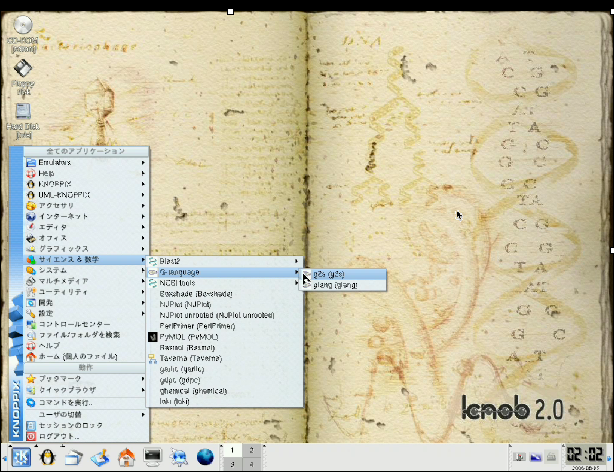 CD-ROM
Floppy
Disk
Hard Disk
全てのアプリケーション
Emulators
Help
KNOPPIX
UML-KNOPPIX
アクセサリ
インターネット
エディタ
オフィス
グラフィックス
サイエンス & 数学
システム
マルチメディア
ユーティリティ
開発
設定
コントロールセンター
ファイル/フォルダを検索
ヘルプ
ホーム (個人のファイル)
動作
ブックマーク
クイックブラウザ
コマンドを実行...
ユーザの切替
セッションのロック
ログアウト...
KNOPPIX
Blast2
G-language
NCBI tools
Boxshade (Boxshade)
NJPlot (NJPlot)
NJPlot unrooted (NJPlot unrooted)
PerlPrimer (PerlPrimer)
PyMOL (PyMOL)
Rasmol (Rasmol)
Taverna (Taverna)
garlic (garlic)
gdpc (gdpc)
ghemical (ghemical)
loki (loki)
g2s (g2s)
glang (glang)
knob 2.0
1 2
3 4
02:02